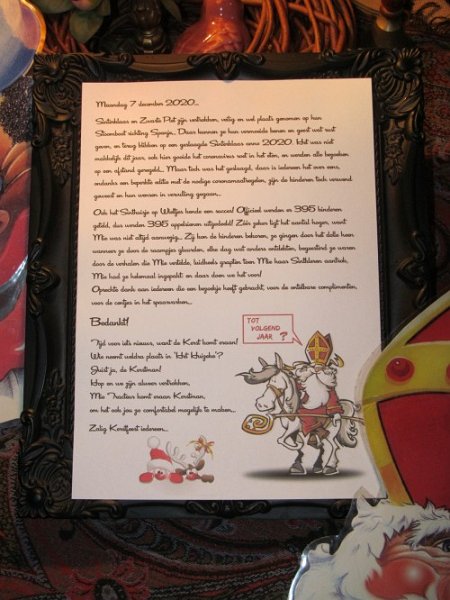 Maandag 7 december 2020...
Sinterklaas en Zwarte Piet zijn vertrokken, veilig en wel plaats genomen op hun
Stoomboot richting Spanje... Daar kunnen ze hun vermoeide benen en geest wat rust
geven, en terug blikken op een geslaagde Sinterklaas anno 2020. Het was niet
makkelijk dit jaar, ook hier gooide het coronavirus roet in het eten, en werden alle bezoeken
op een afstand geregeld... Maar toch was het geslaagd, daar is iedereen het over eens,
ondanks een beperkte editie met de nodige coronamaatregelen, zijn de kinderen toch verwend
geweest en hun wensen in vervulling gegaan...
Ook het Sinthuisje op Weltjes kende een succes! Officieel werden er 395 kinderen
geteld, dus werden 395 appelsienen uitgedeeld! Zéér zeker ligt het aantal hoger, want
Mie was niet altijd aanwezig... Zij kon de kinderen bekoren, ze gingen door het dolle heen
wanneer ze door de raampjes gluurden, elke dag wat anders ontdekten, begeesterd ze waren
door de verhalen die Mie vertelde, luidkeels griepten toen Mie haar Sintkleren aanhad,
Mie had ze helemaal ingepakt: en daar doen we het voor!
Oprechte dank aan iedereen die een bezoekje heeft gebracht, voor de ontelbare complimenten,
voor de centjes in het spaarvarken...
Bedankt!
Tijd voor iets nieuws, want de Kerst komt eraan!
Wie neemt weldra plaats in 'Het Huizeke'?
Juist ja, de Kerstman!
Hop en we zijn alweer vertrokken,
Mie Tracteur komt eraan Kerstman,
om het ook jou zo comfortabel mogelijk te maken...
Zalig Kerstfeest iedereen...
TOT
VOLGEND
JAAR ?